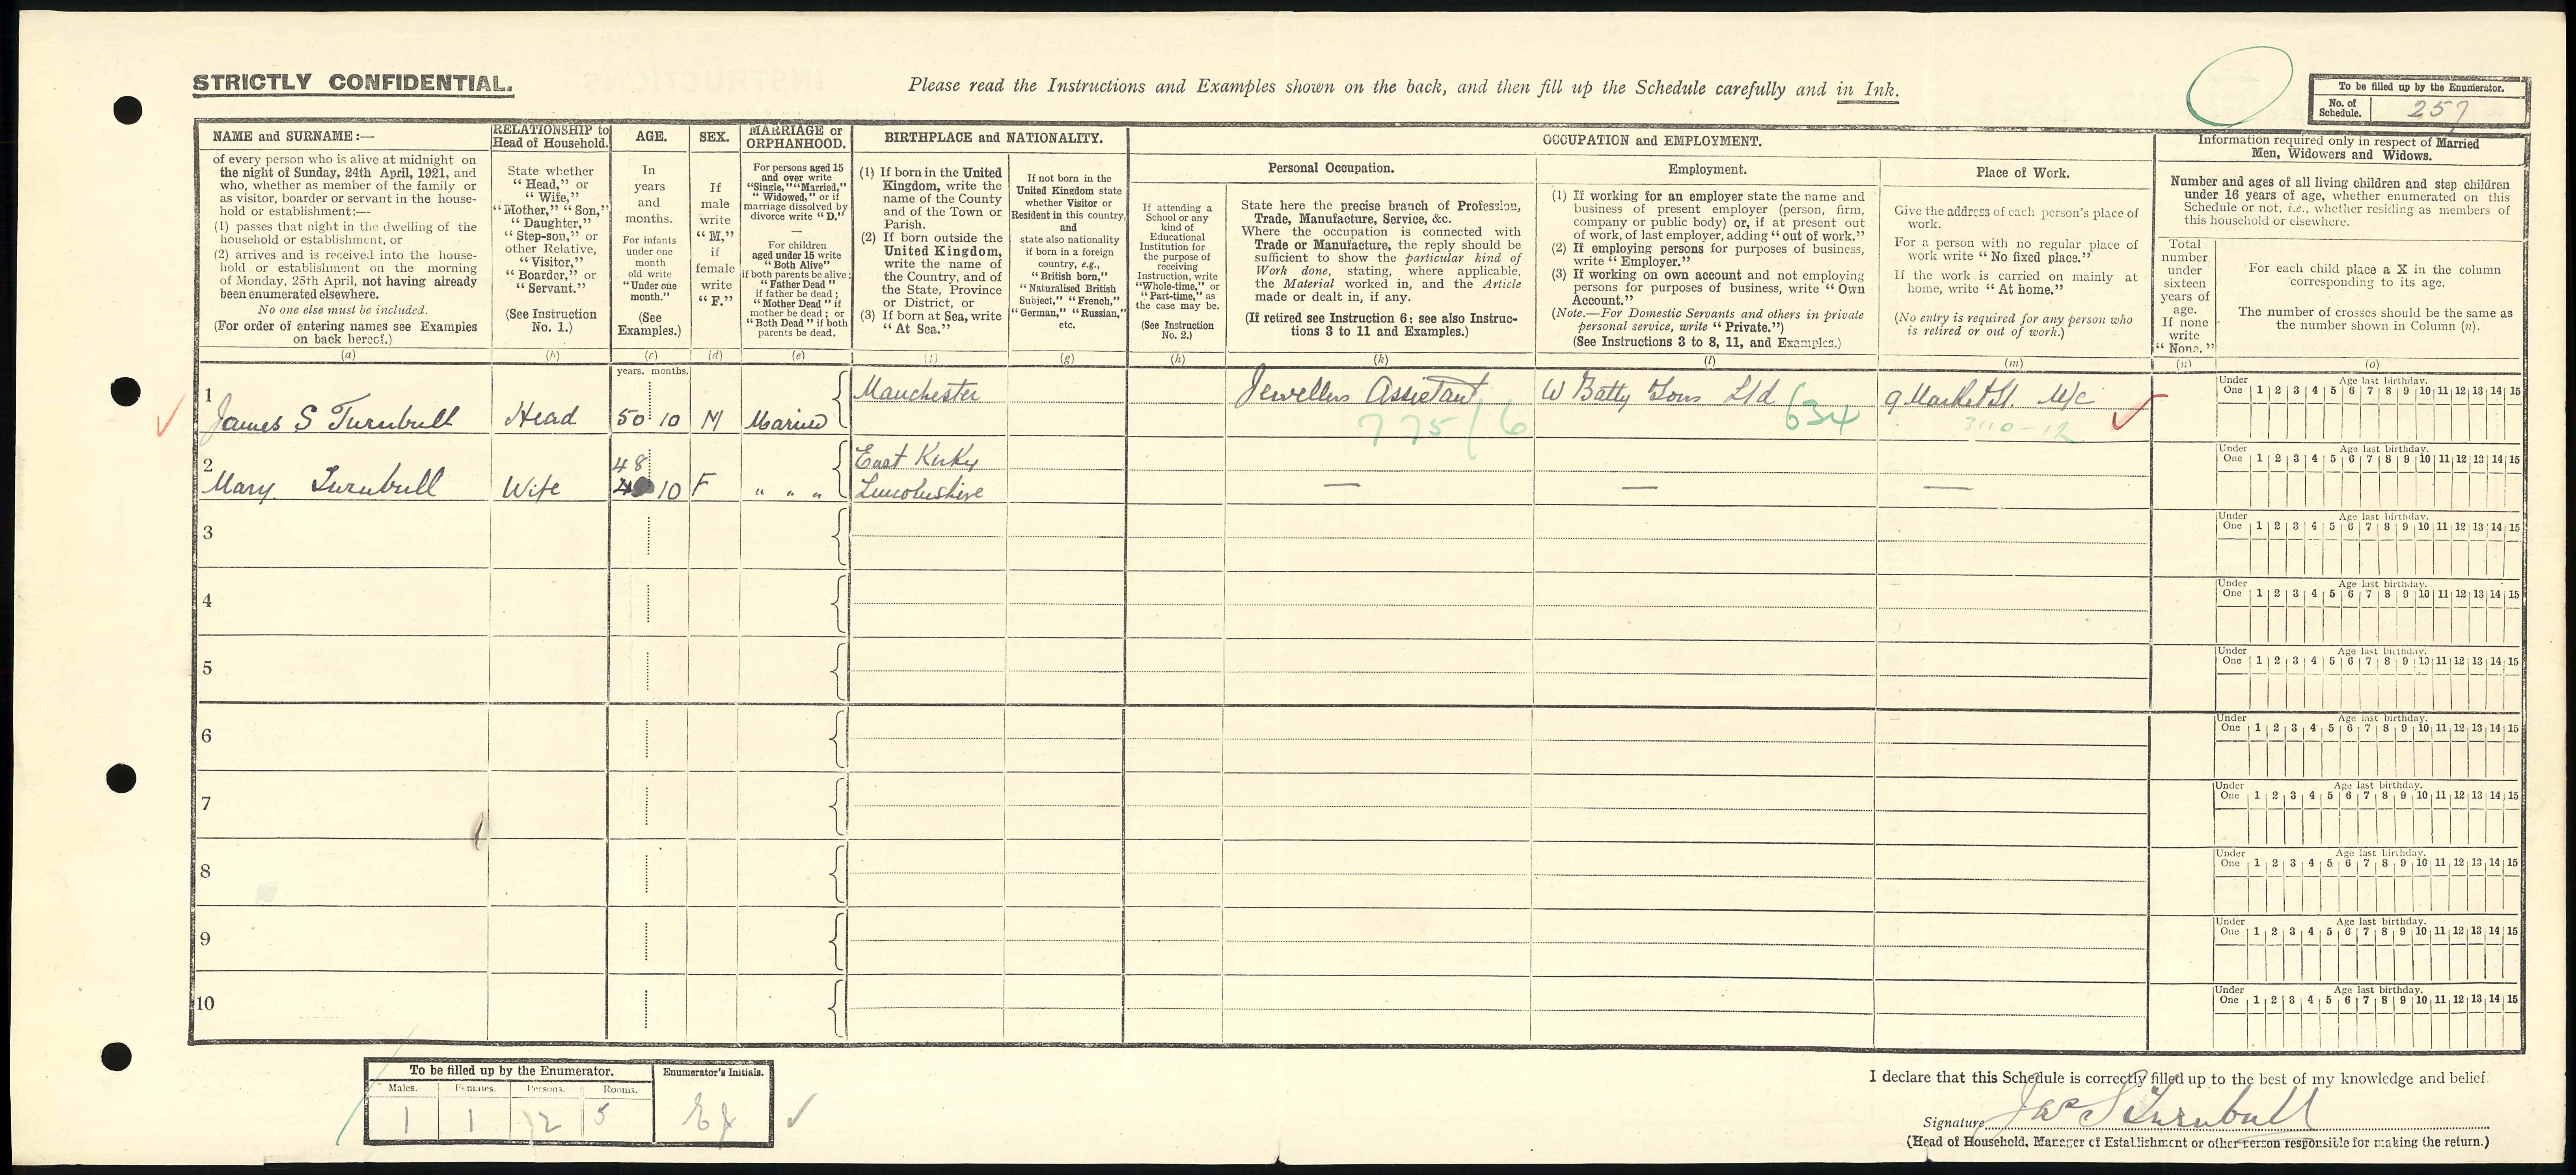 STRICTLY CONFIDENTIAL.
Please read the Instructions and Examples shown on the back, and then fill up the Schedule carefully and in Ink.
To be filled up by the Enumerator.
No. of Schedule.
257
NAME and SURNAME:—
of every person who is alive at midnight on
the night of Sunday, 24th April, 1921, and
who, whether as member of the family or
as visitor, boarder or servant in the house-
hold or establishment:—
(1) passes that night in the dwelling of the
household or establishment, or
(2) arrives and is received into the house-
hold or establishment on the morning
of Monday, 25th April, not having already
been enumerated elsewhere.
No one else must be included.
(For order of entering names see Examples
on back hereof.)
(a)
RELATIONSHIP to
Head of Household.
State whether
"Head," or
"Wife,"
"Mother," "Son,"
"Daughter,"
"Step-son," or
other Relative,
"Visitor,"
"Boarder," or
"Servant."
(See Instruction
No. 1.)
(b)
AGE.
In
years
and
months.
For infants
under one
month
old write
"Under one
month."
(See
Examples.)
(c)
SEX.
If
male
write
"M,"
if
female
write
"F."
(d)
MARRIAGE or
ORPHANHOOD.
For persons aged 15
and over write
"Single," "Married,"
"Widowed," or if
marriage dissolved by
divorce write "D."
For children
aged under 15 write
"Both Alive"
if both parents be alive;
"Father Dead"
if father be dead;
"Mother Dead" if
mother be dead; or
"Both Dead" if both
parents be dead.
(e)
BIRTHPLACE and NATIONALITY.
(1) If born in the United
Kingdom, write the
name of the County
and of the Town or
Parish.
(2) If born outside the
United Kingdom,
write the name of
the Country, and of
the State, Province
or District, or
(3) If born at Sea, write
"At Sea."
(f)
If not born in the
United Kingdom state
whether Visitor or
Resident in this country,
and
state also nationality
if born in a foreign
country, e.g.,
"British born,"
"Naturalised British
Subject," "French,"
"German," "Russian,"
etc.
(g)
OCCUPATION and EMPLOYMENT.
If attending a
School or any
kind of
Educational
Institution for
the purpose of
receiving
Instruction, write
"Whole-time," or
"Part-time," as
the case may be.
(See Instruction
No. 2.)
(h)
Personal Occupation.
State here the precise branch of Profession,
Trade, Manufacture, Service, &c.
Where the occupation is connected with
Trade or Manufacture, the reply should be
sufficient to show the particular kind of
Work done, stating, where applicable,
the Material worked in, and the Article
made or dealt in, if any.
(If retired see Instruction 6: see also Instruc-
tions 3 to 11 and Examples.)
(k)
Employment.
(1) If working for an employer state the name and
business of present employer (person, firm,
company or public body) or, if at present out
of work, of last employer, adding "out of work."
(2) If employing persons for purposes of business,
write "Employer."
(3) If working on own account and not employing
persons for purposes of business, write "Own
Account."
(Note.—For Domestic Servants and others in private
personal service, write "Private.")
(See Instructions 3 to 8, 11, and Examples.)
(l)
Place of Work.
Give the address of each person's place of
work.
For a person with no regular place of
work write "No fixed place."
If the work is carried on mainly at
home, write "At home."
(No entry is required for any person who
is retired or out of work.)
(m)
Information required only in respect of Married
Men, Widowers and Widows.
Number and ages of all living children and step children
under 16 years of age, whether enumerated on this
Schedule or not, i.e., whether residing as members of
this household or elsewhere.
Total
number
under
sixteen
years of
age.
If none
write
"None."
(n)
For each child place a X in the column
corresponding to its age.
The number of crosses should be the same as
the number shown in Column (n).
(o)
years. months.
1
James S Turnbull Head 50 10 M Married Manchester Jewellers Assistant W Batty & Sons Ltd 9 Market St. M/c
775/6 634 3110-12
Under One Age last birthday. 1 2 3 4 5 6 7 8 9 10 11 12 13 14 15
2
Mary Turnbull Wife 48 10 F " " " East Kirky Lincolnshire — — —
Under One Age last birthday. 1 2 3 4 5 6 7 8 9 10 11 12 13 14 15
3
Under One Age last birthday. 1 2 3 4 5 6 7 8 9 10 11 12 13 14 15
4
Under One Age last birthday. 1 2 3 4 5 6 7 8 9 10 11 12 13 14 15
5
Under One Age last birthday. 1 2 3 4 5 6 7 8 9 10 11 12 13 14 15
6
Under One Age last birthday. 1 2 3 4 5 6 7 8 9 10 11 12 13 14 15
7
Under One Age last birthday. 1 2 3 4 5 6 7 8 9 10 11 12 13 14 15
8
Under One Age last birthday. 1 2 3 4 5 6 7 8 9 10 11 12 13 14 15
9
Under One Age last birthday. 1 2 3 4 5 6 7 8 9 10 11 12 13 14 15
10
Under One Age last birthday. 1 2 3 4 5 6 7 8 9 10 11 12 13 14 15
To be filled up by the Enumerator.
Males. Females. Persons. Rooms.
1 1 2 5
Enumerator's Initials.
I declare that this Schedule is correctly filled up to the best of my knowledge and belief.
Signature Jas S Turnbull
(Head of Household, Manager of Establishment or other person responsible for making the return.)